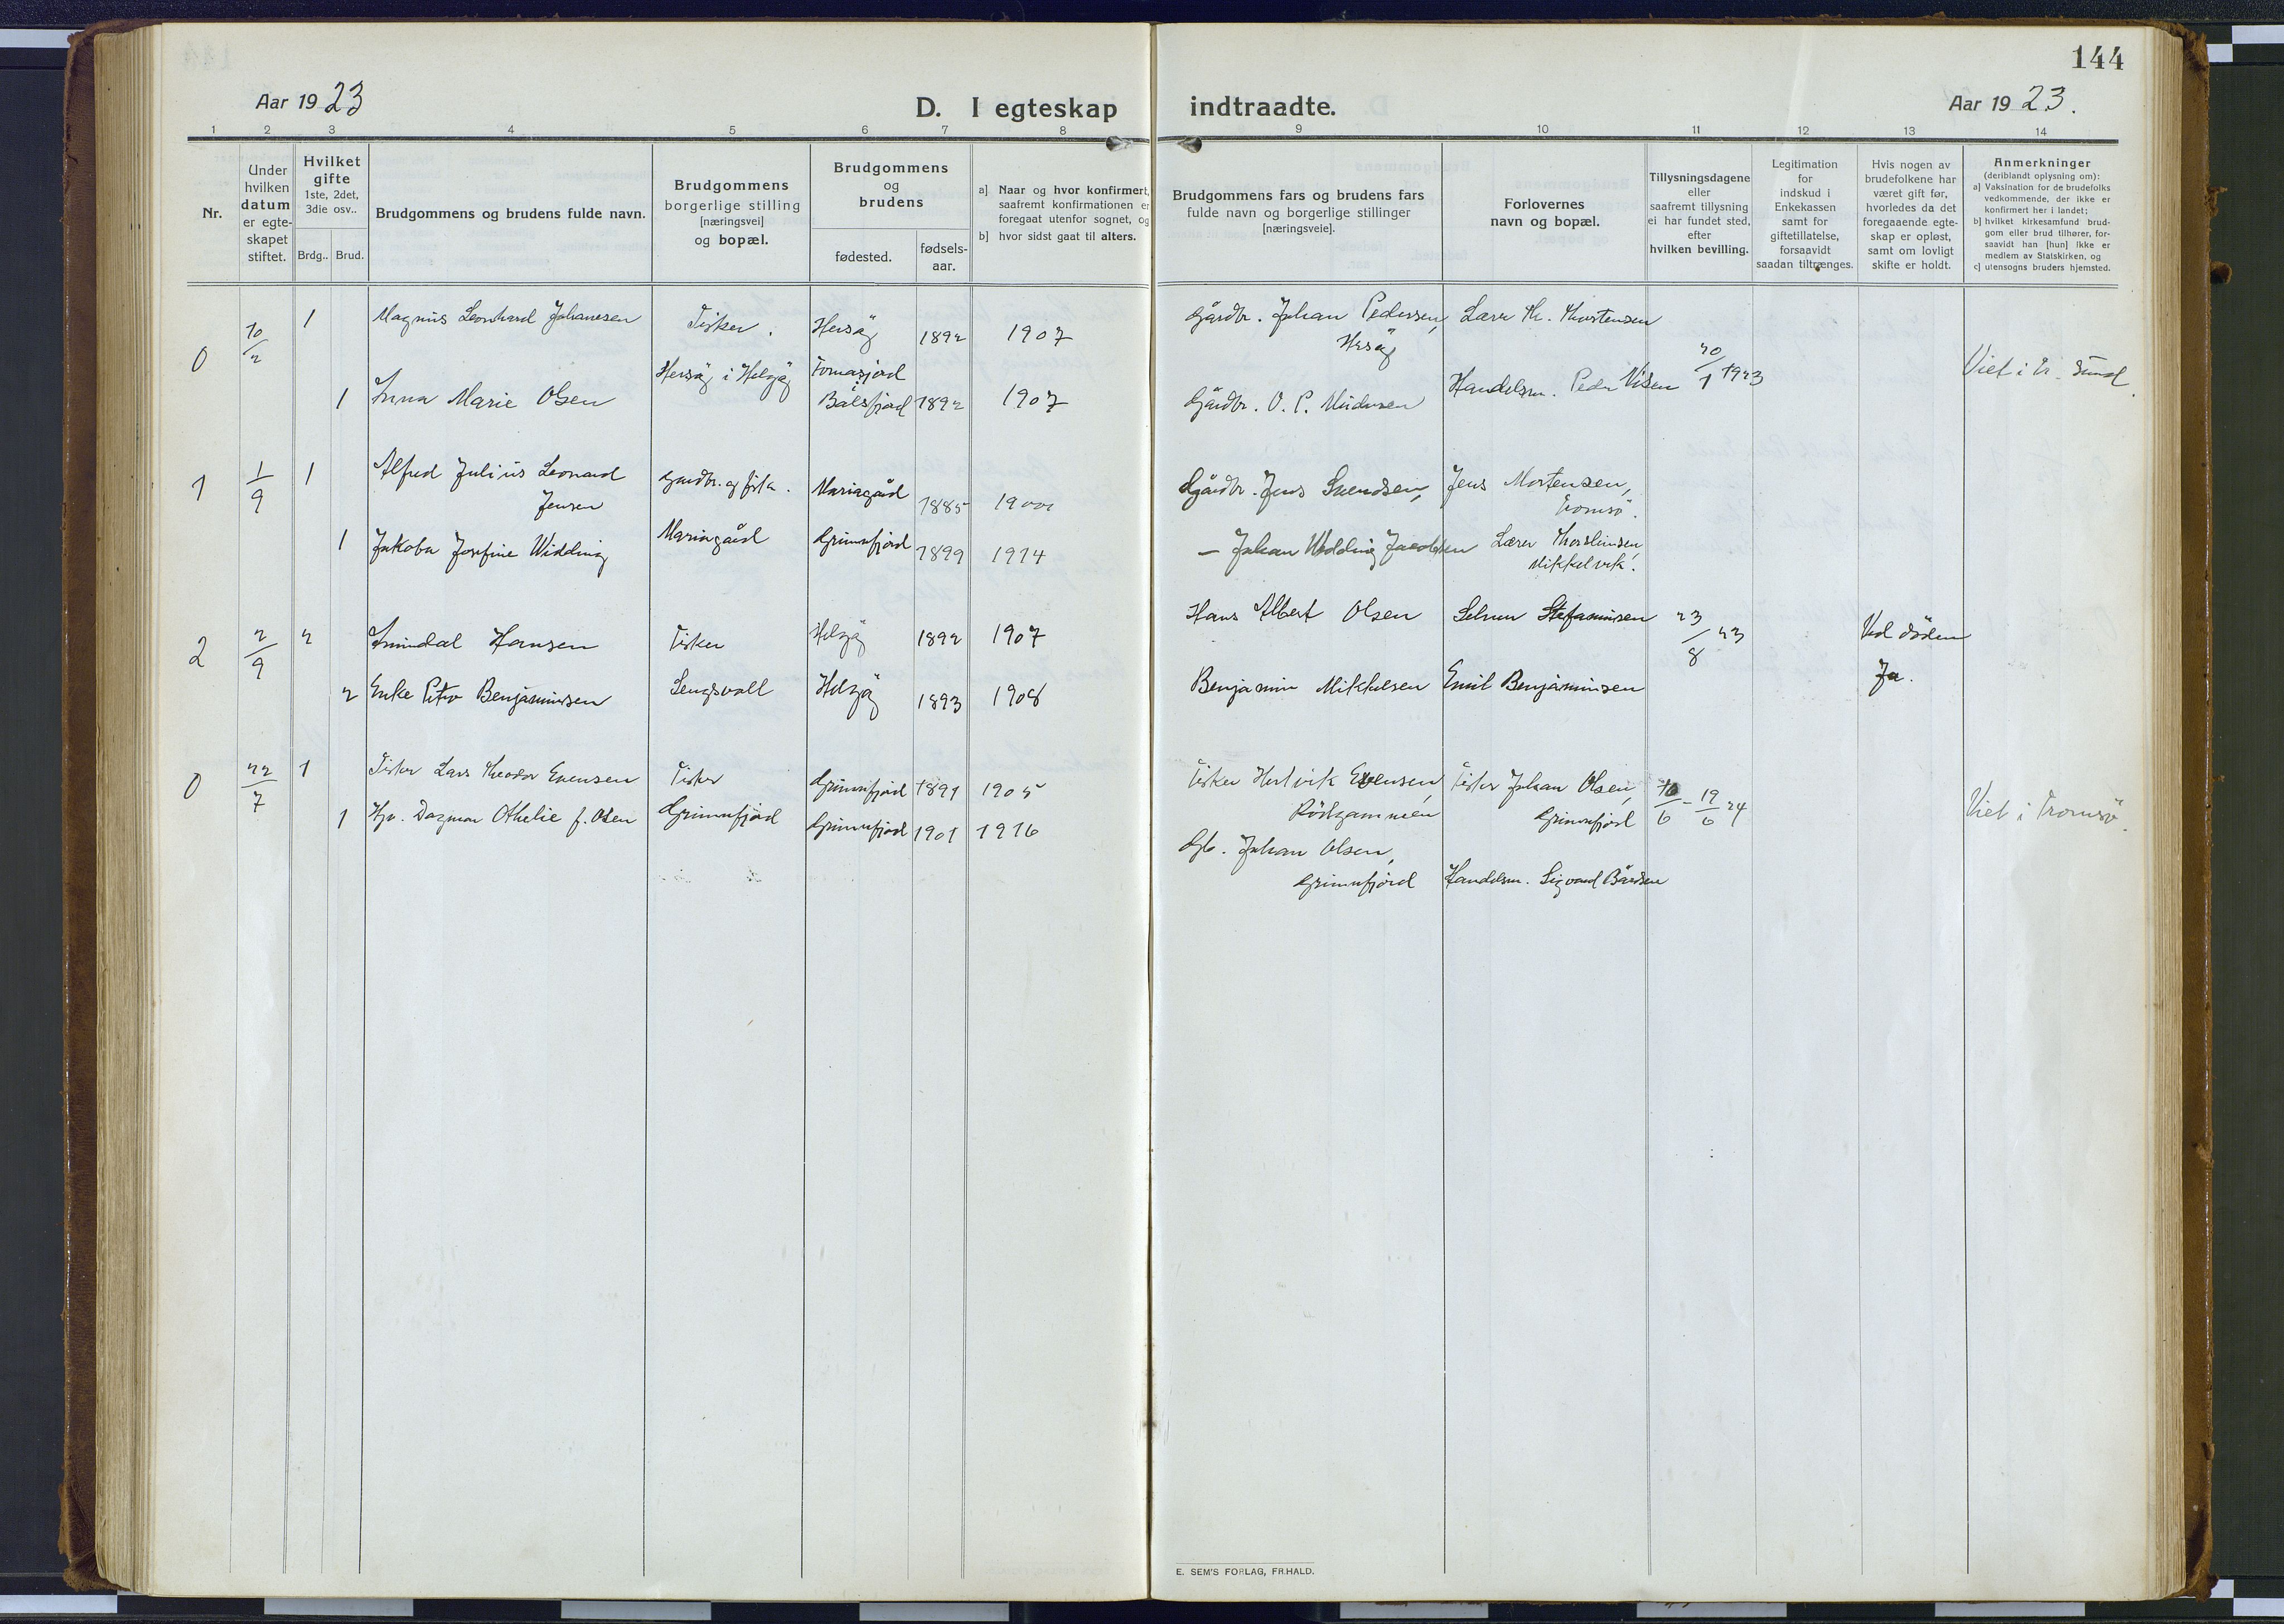 144
Aar 1923
D. I egteskap indtraadte.
Aar 1923.
1 2 3 4 5 6 7 8 9 10 11 12 13 14
Nr.
Under
hvilken
datum
er egte-
skapet
stiftet.
Hvilket
gifte
1ste, 2det,
3die osv..
Brdg.. Brud.
Brudgommens og brudens fulde navn.
Brudgommens
borgerlige stilling
[næringsvei]
og bopæl.
Brudgommens
og
brudens
fødested.
fødsels-
aar.
a] Naar og hvor konfirmert,
saafremt konfirmationen er
foregaat utenfor sognet, og
b] hvor sidst gaat til alters.
Brudgommens fars og brudens fars
fulde navn og borgerlige stillinger
[næringsveie].
Forlovernes
navn og bopæl.
Tillysningsdagene
eller
saafremt tillysning
ei har fundet sted,
efter
hvilken bevilling.
Legitimation
for
indskud i
Enkekassen
samt for
giftetillatelse,
forsaavidt
saadan tiltrænges.
Hvis nogen av
brudefolkene har
været gift før,
hvorledes da det
foregaaende egte-
skap er opløst,
samt om lovligt
skifte er holdt.
Anmerkninger
(deriblandt oplysning om):
a] Vaksination for de brudefolks
vedkommende, der ikke er
konfirmert her i landet;
b] hvilket kirkesamfund brud-
gom eller brud tilhører, for-
saavidt han [hun] ikke er
medlem av Statskirken, og
c] utensogns bruders hjemsted.
0 10/2 1 Magnus Leonhard Johansen Fisker. 1892 1907 Gårdbr. Johan Pedersen, Lærer Th. Thorstensen
i Helgøy 20/1 1923 Viet i Tr. sund.
1 Anna Marie Olsen Balsfjord 1892 1907 Gårdbr. O. P. Handelsm. Peder
1 1/9 1 Alfred Julius Leonard Gardbr. og fisk. Mariagård 1885 1900 Gårdbr. Jens Svendsen, Jens Mortensen,
Jensen Tromsö.
1 Jakoba Josefine Widding Mariagård Grunnfjord 1899 1914 — Johan Widding Jacobsen Lærer
Mikkelvik.
2 2/9 2 Amandal Hansen Fisker Helgøy 1892 1907 Hans Albert Olsen Selmer Stefanussen 23/8 23 Ved döden
2 Benjaminsen Lengsvoll Helgøy 1893 1908 Benjamin Mikkelsen Emil Benjaminsen Ja.
0 22/7 1 Fisker Lars Theodor Evensen Fisker Grunnfjord 1891 1905 Fisker Hertvik Evensen, Fisker Johan Olsen, 10/6 - 19/6 24 Viet i Tromsö.
Grunnfjord
1 Dagmar Othelie f. Olsen Grunnfjord Grunnfjord 1901 1916
Gb. Johan Olsen,
Grunnfjord Handelsm. Sigvard Bårdsen
E. SEM'S FORLAG, FR.HALD.